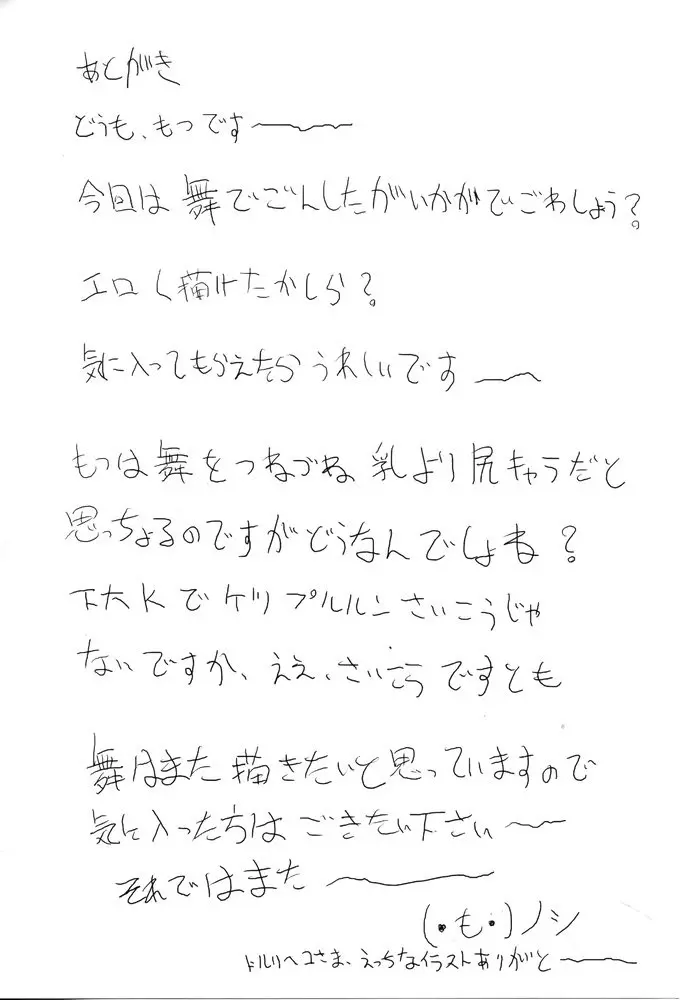 あとがき
どうも、もつです〜
今回は舞でごんしたがいかがでごわしょう?
エロく描けたかしら?
気に入ってもらえたらうれしいです〜
もつは舞をつねづね乳より尻キャラだと
思っちょるのですがどうなんでしょね?
下大Kでケツプルルンさいこうじゃ
ないですか、ええ、さいこうですとも
舞はまた描きたいと思っていますので
気に入った方はごきたい下さい〜
それではまた〜
(・も・)ノシ
トルリヘコさま、えっちなイラストありがと〜